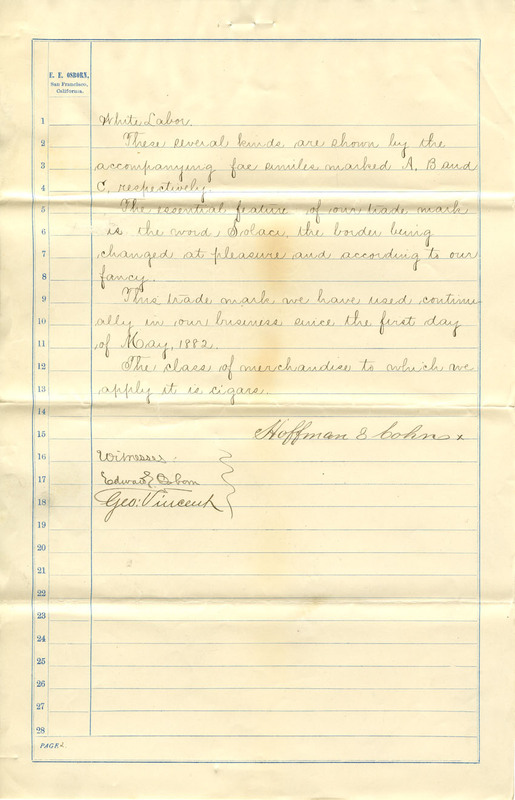 E. E. OSBORN,
San Francisco,
California.
1 White Labor.
2 These several kinds are shown by the
3 accompanying fac similes marked A, B and
4 C, respectively.
5 The essential feature of our trade mark
6 is the word Solace, the border being
7 changed at pleasure and according to our
8 fancy.
9 This trade mark we have used continu-
10 ally in our business since the first day
11 of May, 1882.
12 The class of merchandise to which we
13 apply it is cigars.
14
15 Hoffman & Cohn
16 Witnesses
17 Edward E. Osborn
18 Geo: Vincent
19
20
21
22
23
24
25
26
27
28
PAGE 2